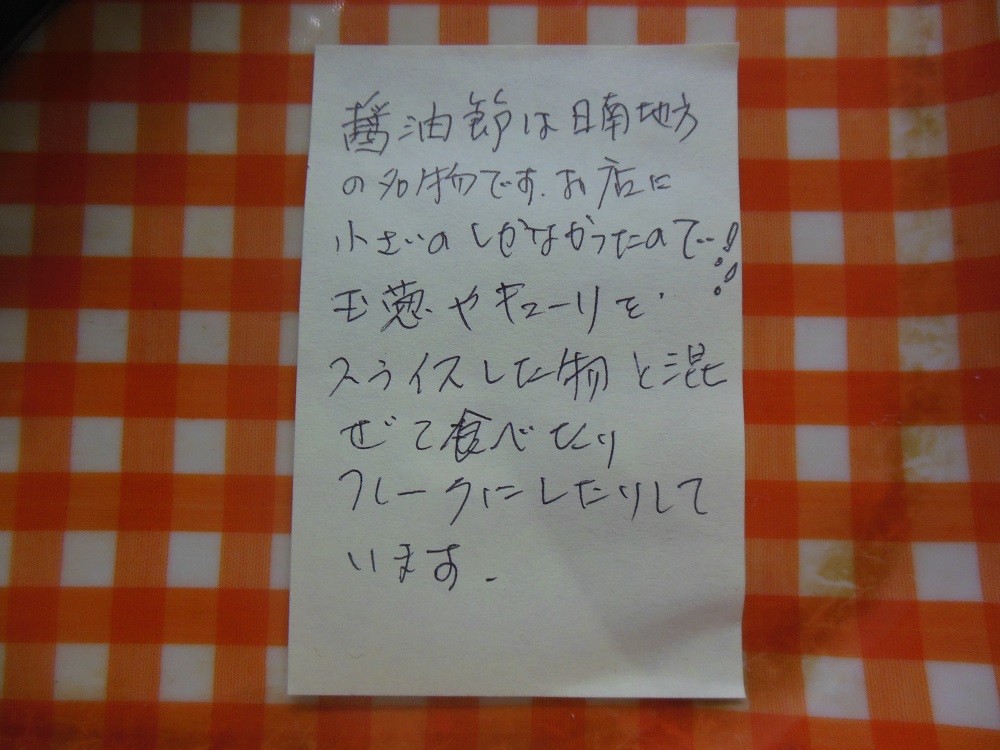 醤油節は日南地方
の名物です.お店に
小さいのしがなかったので‥!!
玉葱やキューリを
スライスした物と混
ぜて食べたり
フレークにしたりして
います.